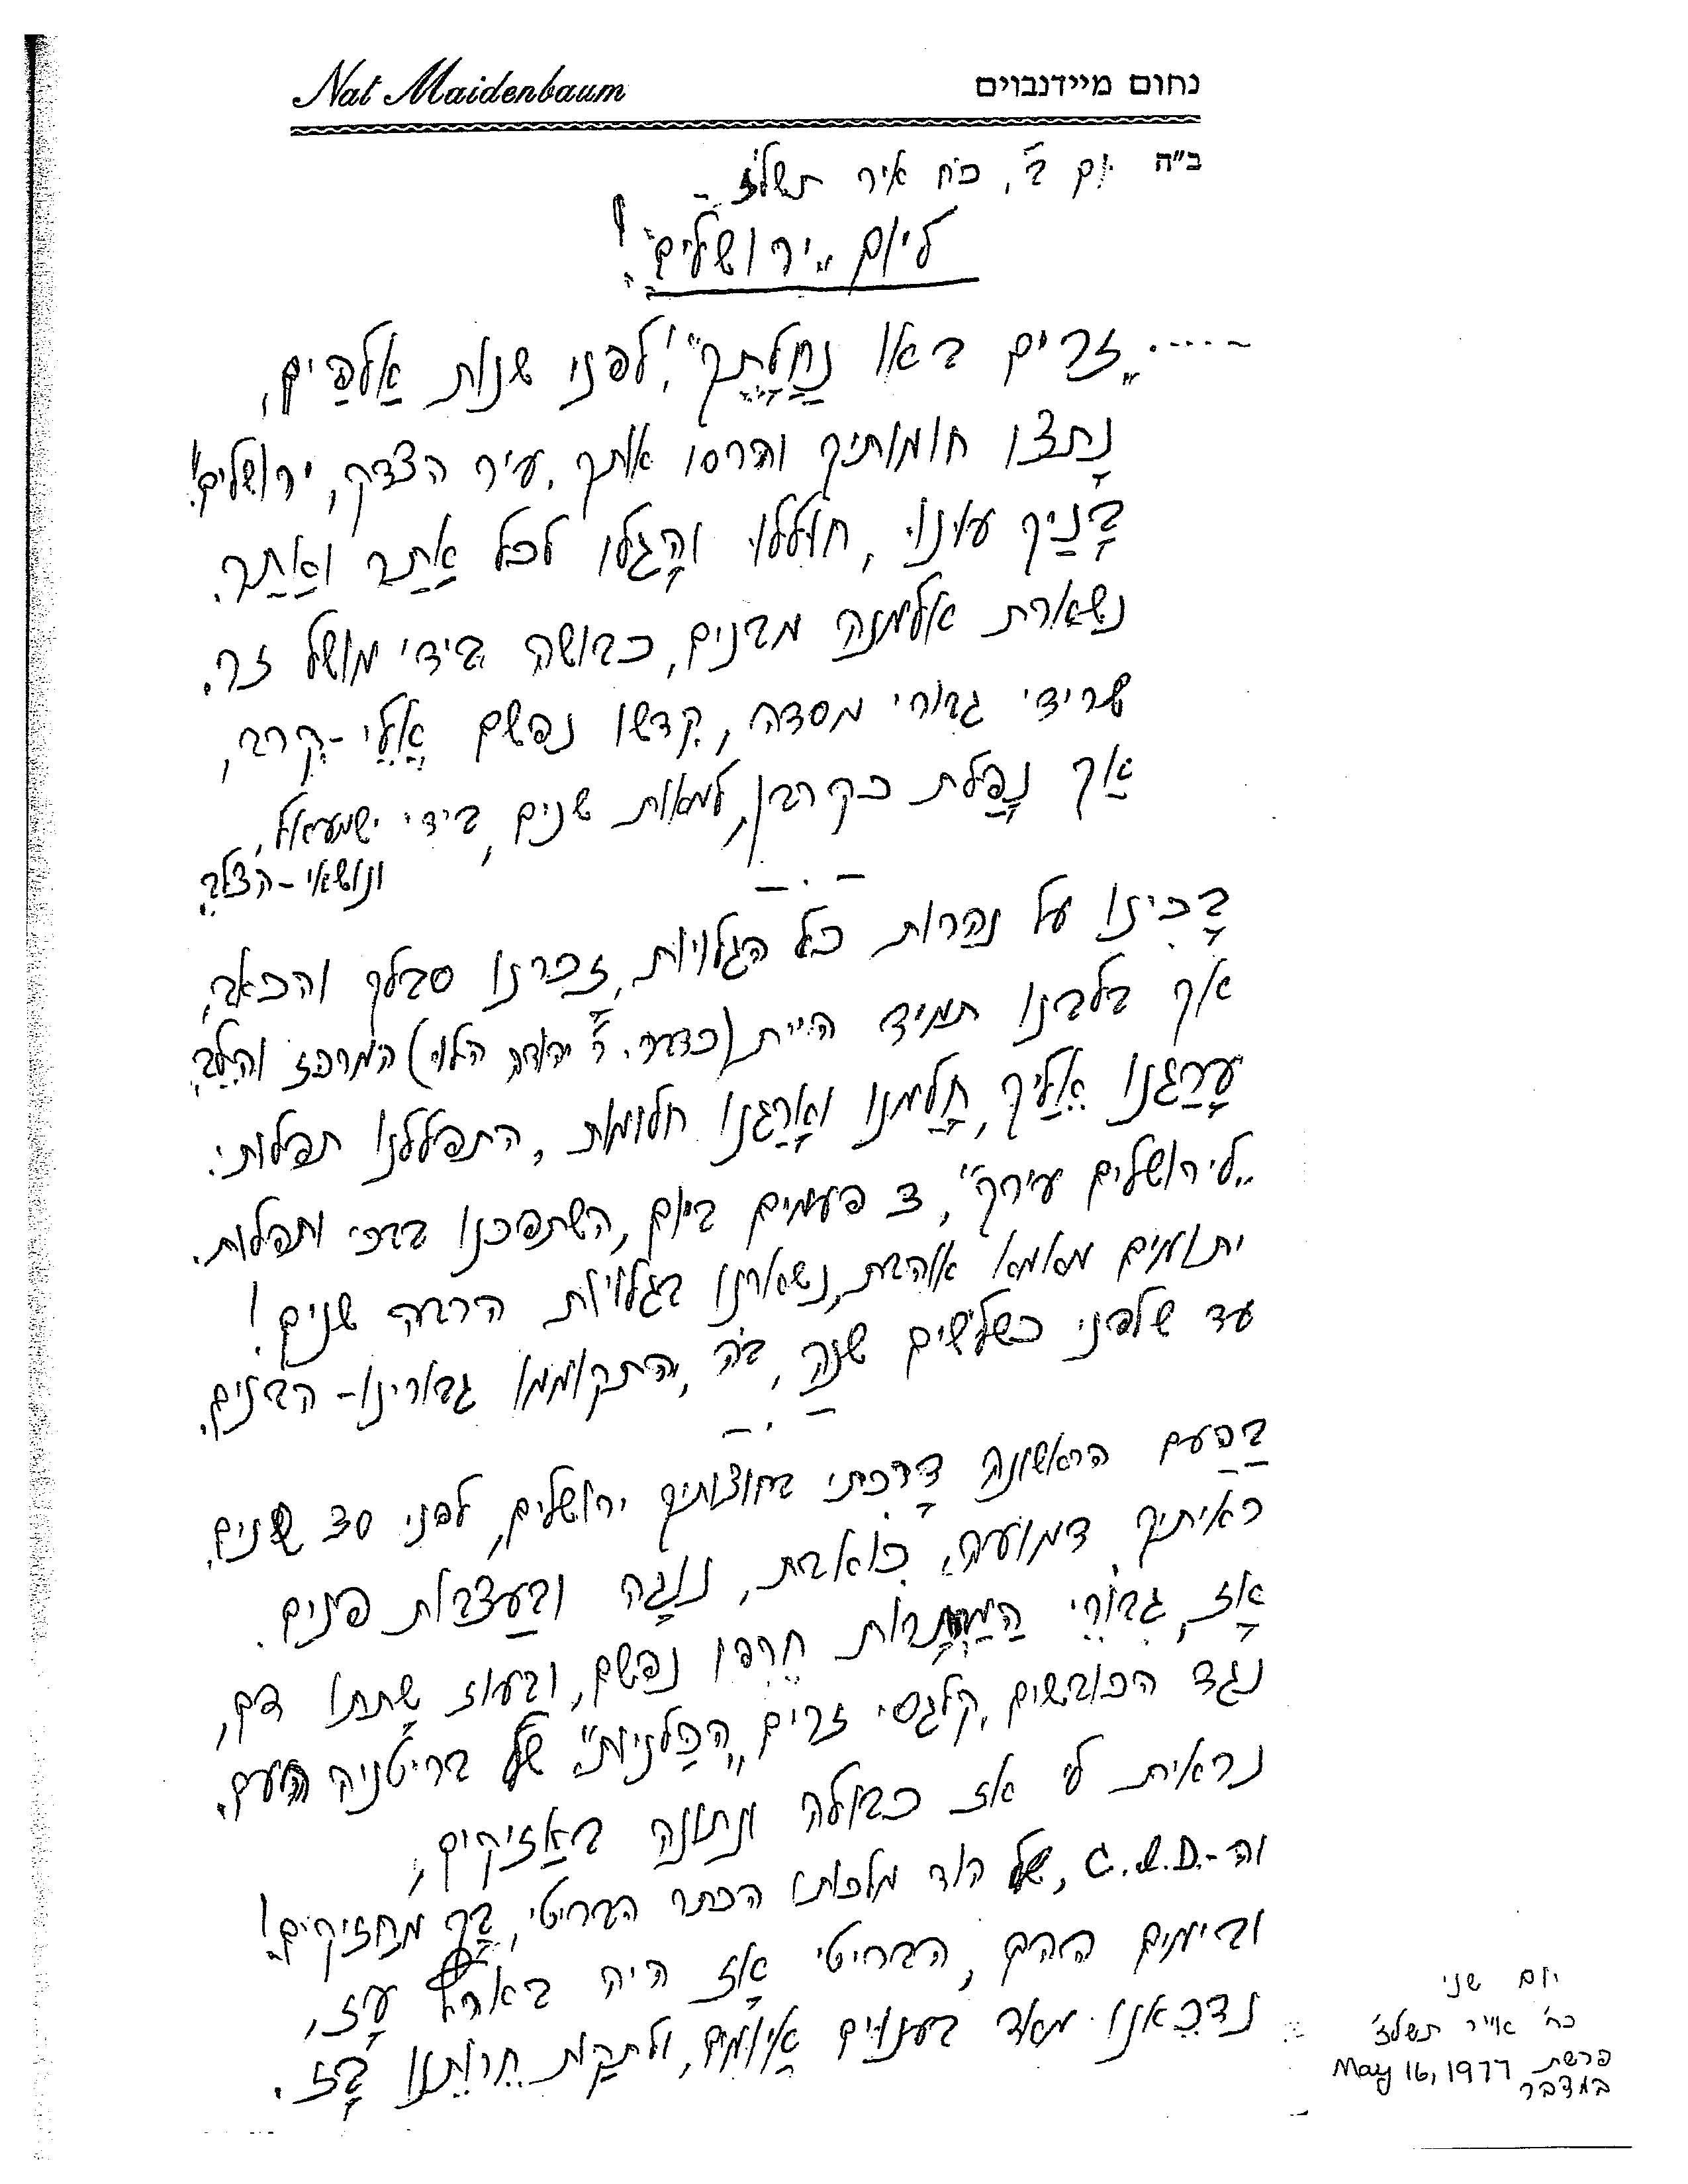 Nat Maidenbaum נחום מיידנבוים
ב"ה יום ב', כ"ח איר תשל"ז -
ליום „ירושלים"!
..... „זרים באו נַחֲלָתֵךְ"! לפני שנות אַלפַּיִם,
נָתצו חומותיך והרסו אותך, עיר הצדק, ירושלים!
בָּנַיִך עונו, חוללו והָגלו לכל אֲתַר ואֲתַר.
נשארת אלמנה מבנים, כבושה בידי מושל זר.
שרידי גבורי מסדה, קִדשו נפשם אֱלֵי-קְרב,
אַך נָפַלת כקרבן, למאות שנים, בידי ישמעאל,
ונושאי-הצלב.
בָּכינו על נהרות כל הגלויות, זָכרנו סבלך והכאב,
אך בלבנו תמיד היית (כדבר ר' יהודה הלוי) המרכז והלֵב.
עָרַגנו אֵלַיִך, חָלַמנו ואָרַגנו חלומות, התפללנו תפלות:
„לירושלים עירך", 3 פעמים ביום, השתפכנו בבכי ותפלות.
יתומים מאמא אוהבת, נשארנו בגלויות הרבה שנים!
עד שלפני כשלשים שנה, ב"ה, התקוממו גבורינו - הבנים.
בַּפַּעם הראשונה דָרכתי בחוצותיך ירושלים, לפני 30 שנים,
ראיתיך דמועה, כואבת, נוּגָה ובעַצבות פנים.
אָז, גבורֵי המַחְתָרות חֵרפו נפשם, ובעוז שָתתו דם,
נגד הכובשים, קלגסי זרים, „הכַּלניות" של בריטניה
נראית לי אז כבולה ונתונה באֲזיקים,
וה-C.I.D., של הוד מלכותו הכתר הבריטי, בָּך מחזיקים!
ובימים ההם, הבריטי אָז היה בארץ עָז,
נדכֵאנו מאד בענוים אֲיומים, ולתקות חֵרותנו בָּז.
יום שני
כח' אייר תשלז'
פרשת May 16, 1977
במדבר